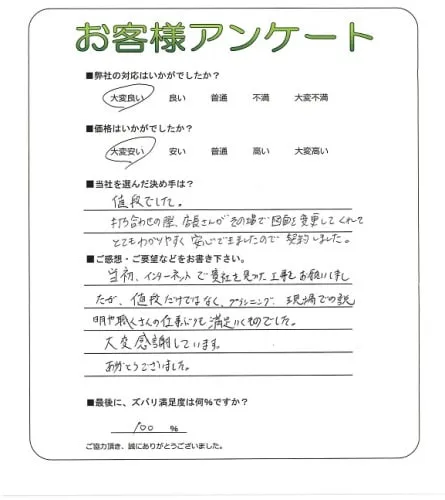 お客様アンケート
■弊社の対応はいかがでしたか？
大変良い 良い 普通 不満 大変不満
■価格はいかがでしたか？
大変安い 安い 普通 高い 大変高い
■当社を選んだ決め手は？
値段でした。
打ち合わせの際、店長さんがその場で図面を変更してくれて
とてもわかりやすく安心できましたので契約しました。
■ご感想・ご要望などをお書き下さい。
当初、インターネットで貴社を見つけ工事をお願いしまし
たが、値段だけではなく、プランニング、現場での説
明や職人さんの仕事ぶりも満足いくものでした。
大変感謝しています。
ありがとうございました。
■最後に、ズバリ満足度は何％ですか？
100 %
ご協力頂き、誠にありがとうございました。